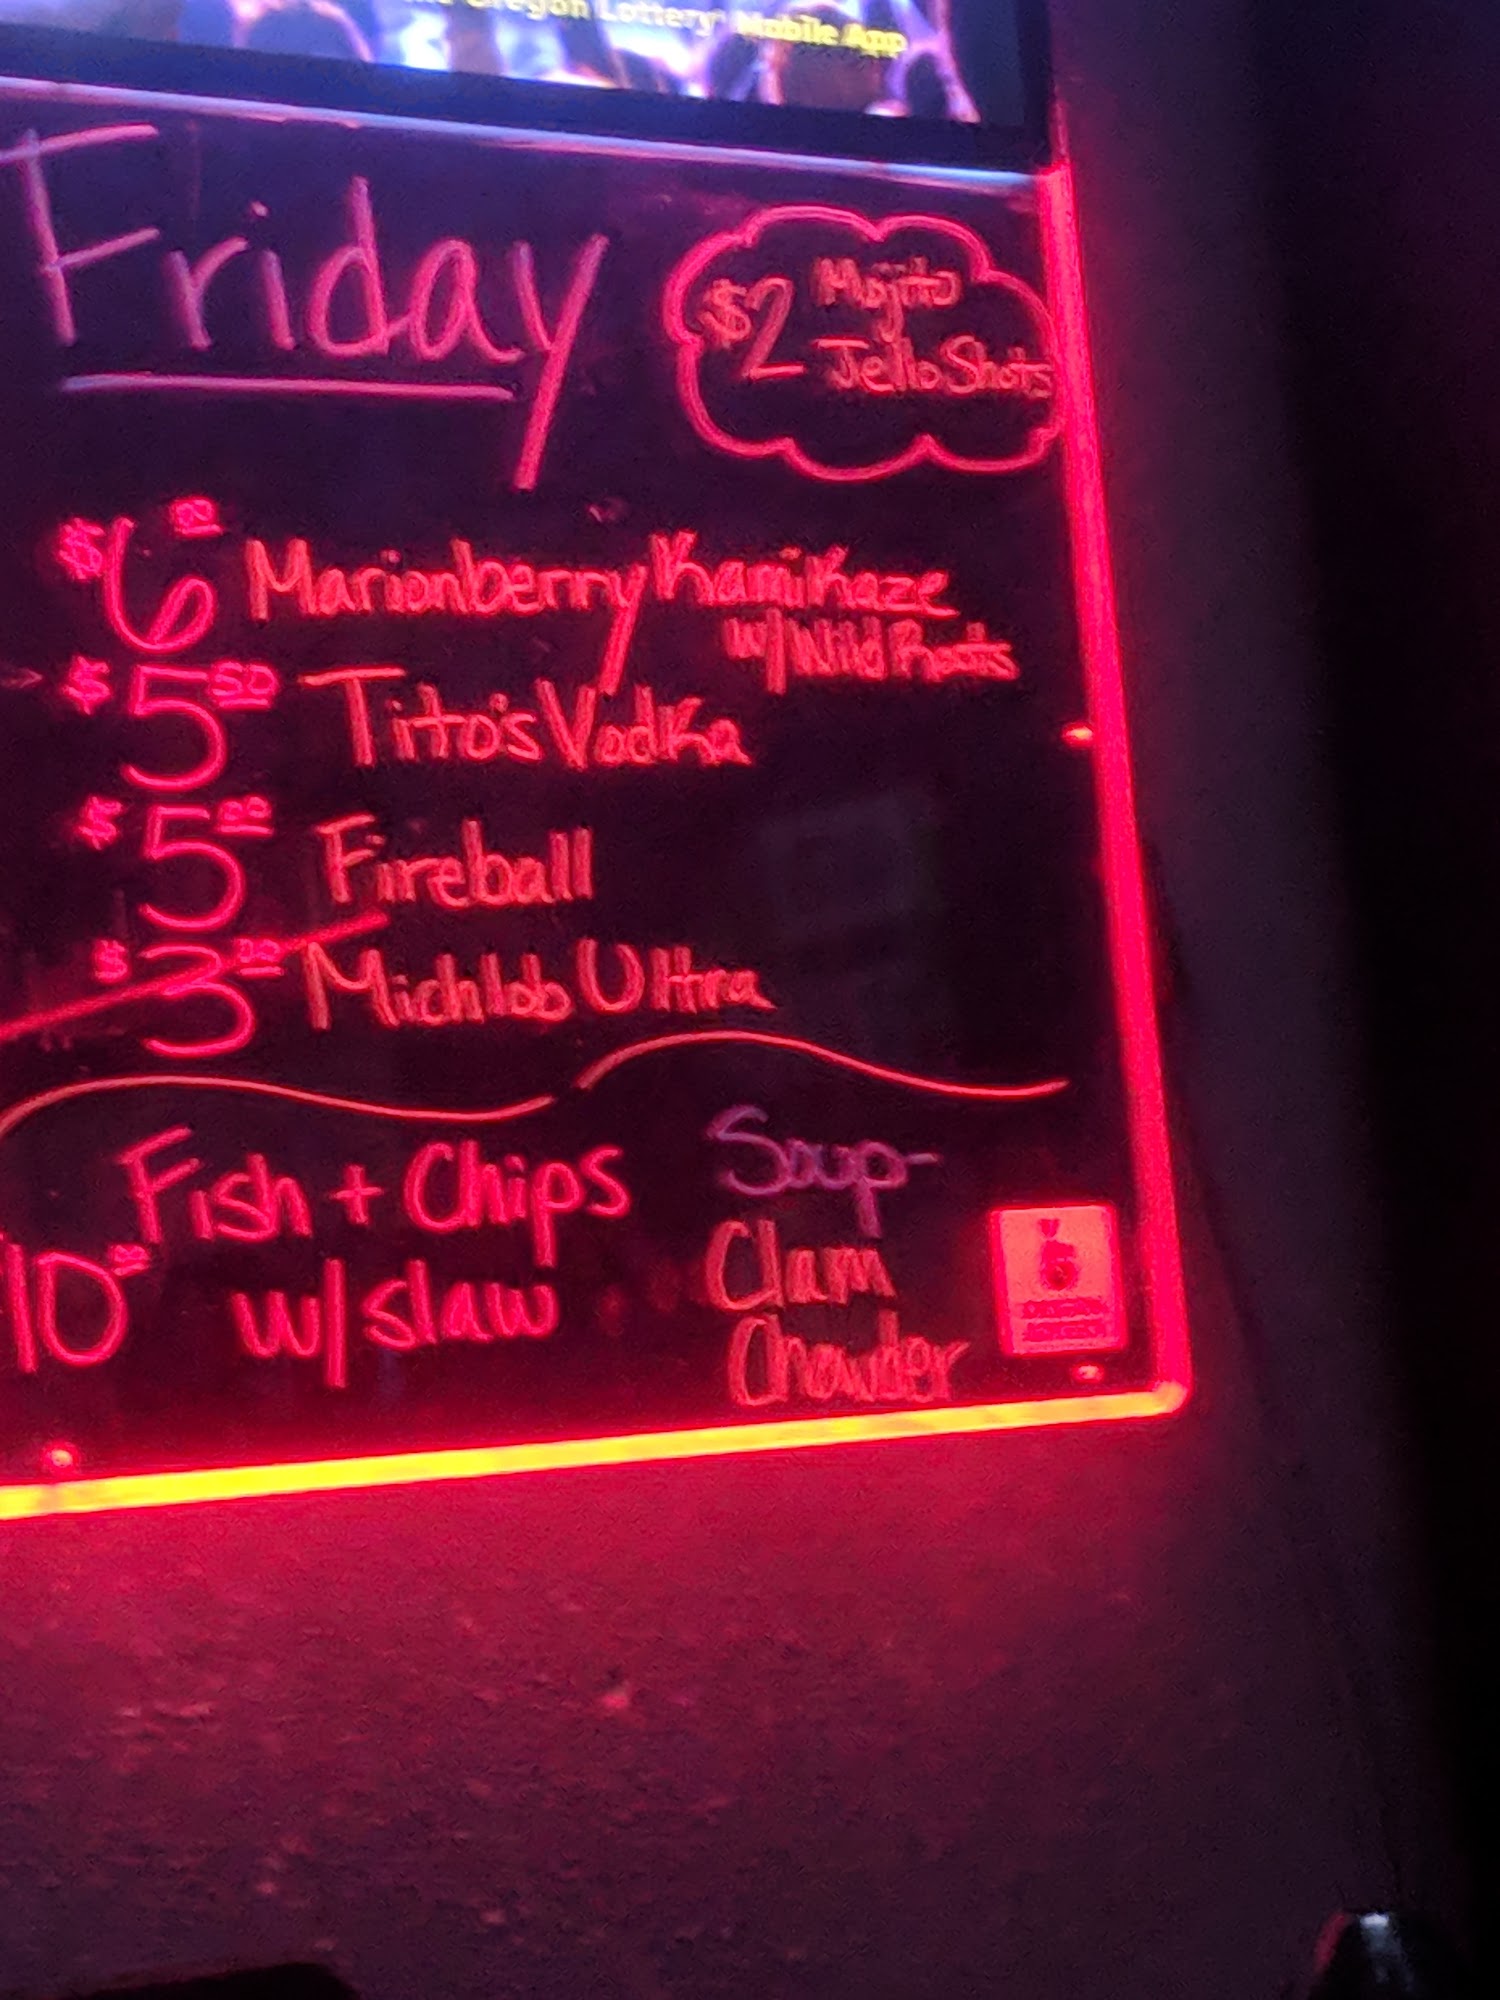 Oregon Lottery Mobile App
Friday
$2 Mojito
Jello Shots
$6.00 Marionberry Kamikaze
w/ Wild Roots
$5.50 Tito's Vodka
$5.00 Fireball
$3.00 Michlob Ultra
Fish + Chips
10.00 w/ slaw
Soup-
Clam
Chowder